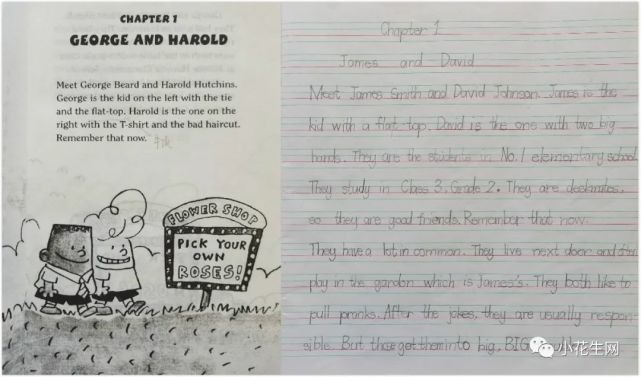 CHAPTER 1
GEORGE AND HAROLD
Meet George Beard and Harold Hutchins.
George is the kid on the left with the tie
and the flat-top. Harold is the one on the
right with the T-shirt and the bad haircut.
Remember that now.
FLOWER SHOP
PICK YOUR
OWN
ROSES!
Chapter 1
James and David
Meet James Smith and David Johnson. James is the
kid with a flat-top. David is the one with two big
hands. They are the students in No.1 elementary school
They study in Class 3, Grade 2. They are deskmates,
so they are good friends. Remember that now.
They have a lot in common. They live next door and
play in the garden which is James's. They both like to
pull pranks. After the jokes, they are usually respon-
sible. But those get them into big, BIG
小花生网